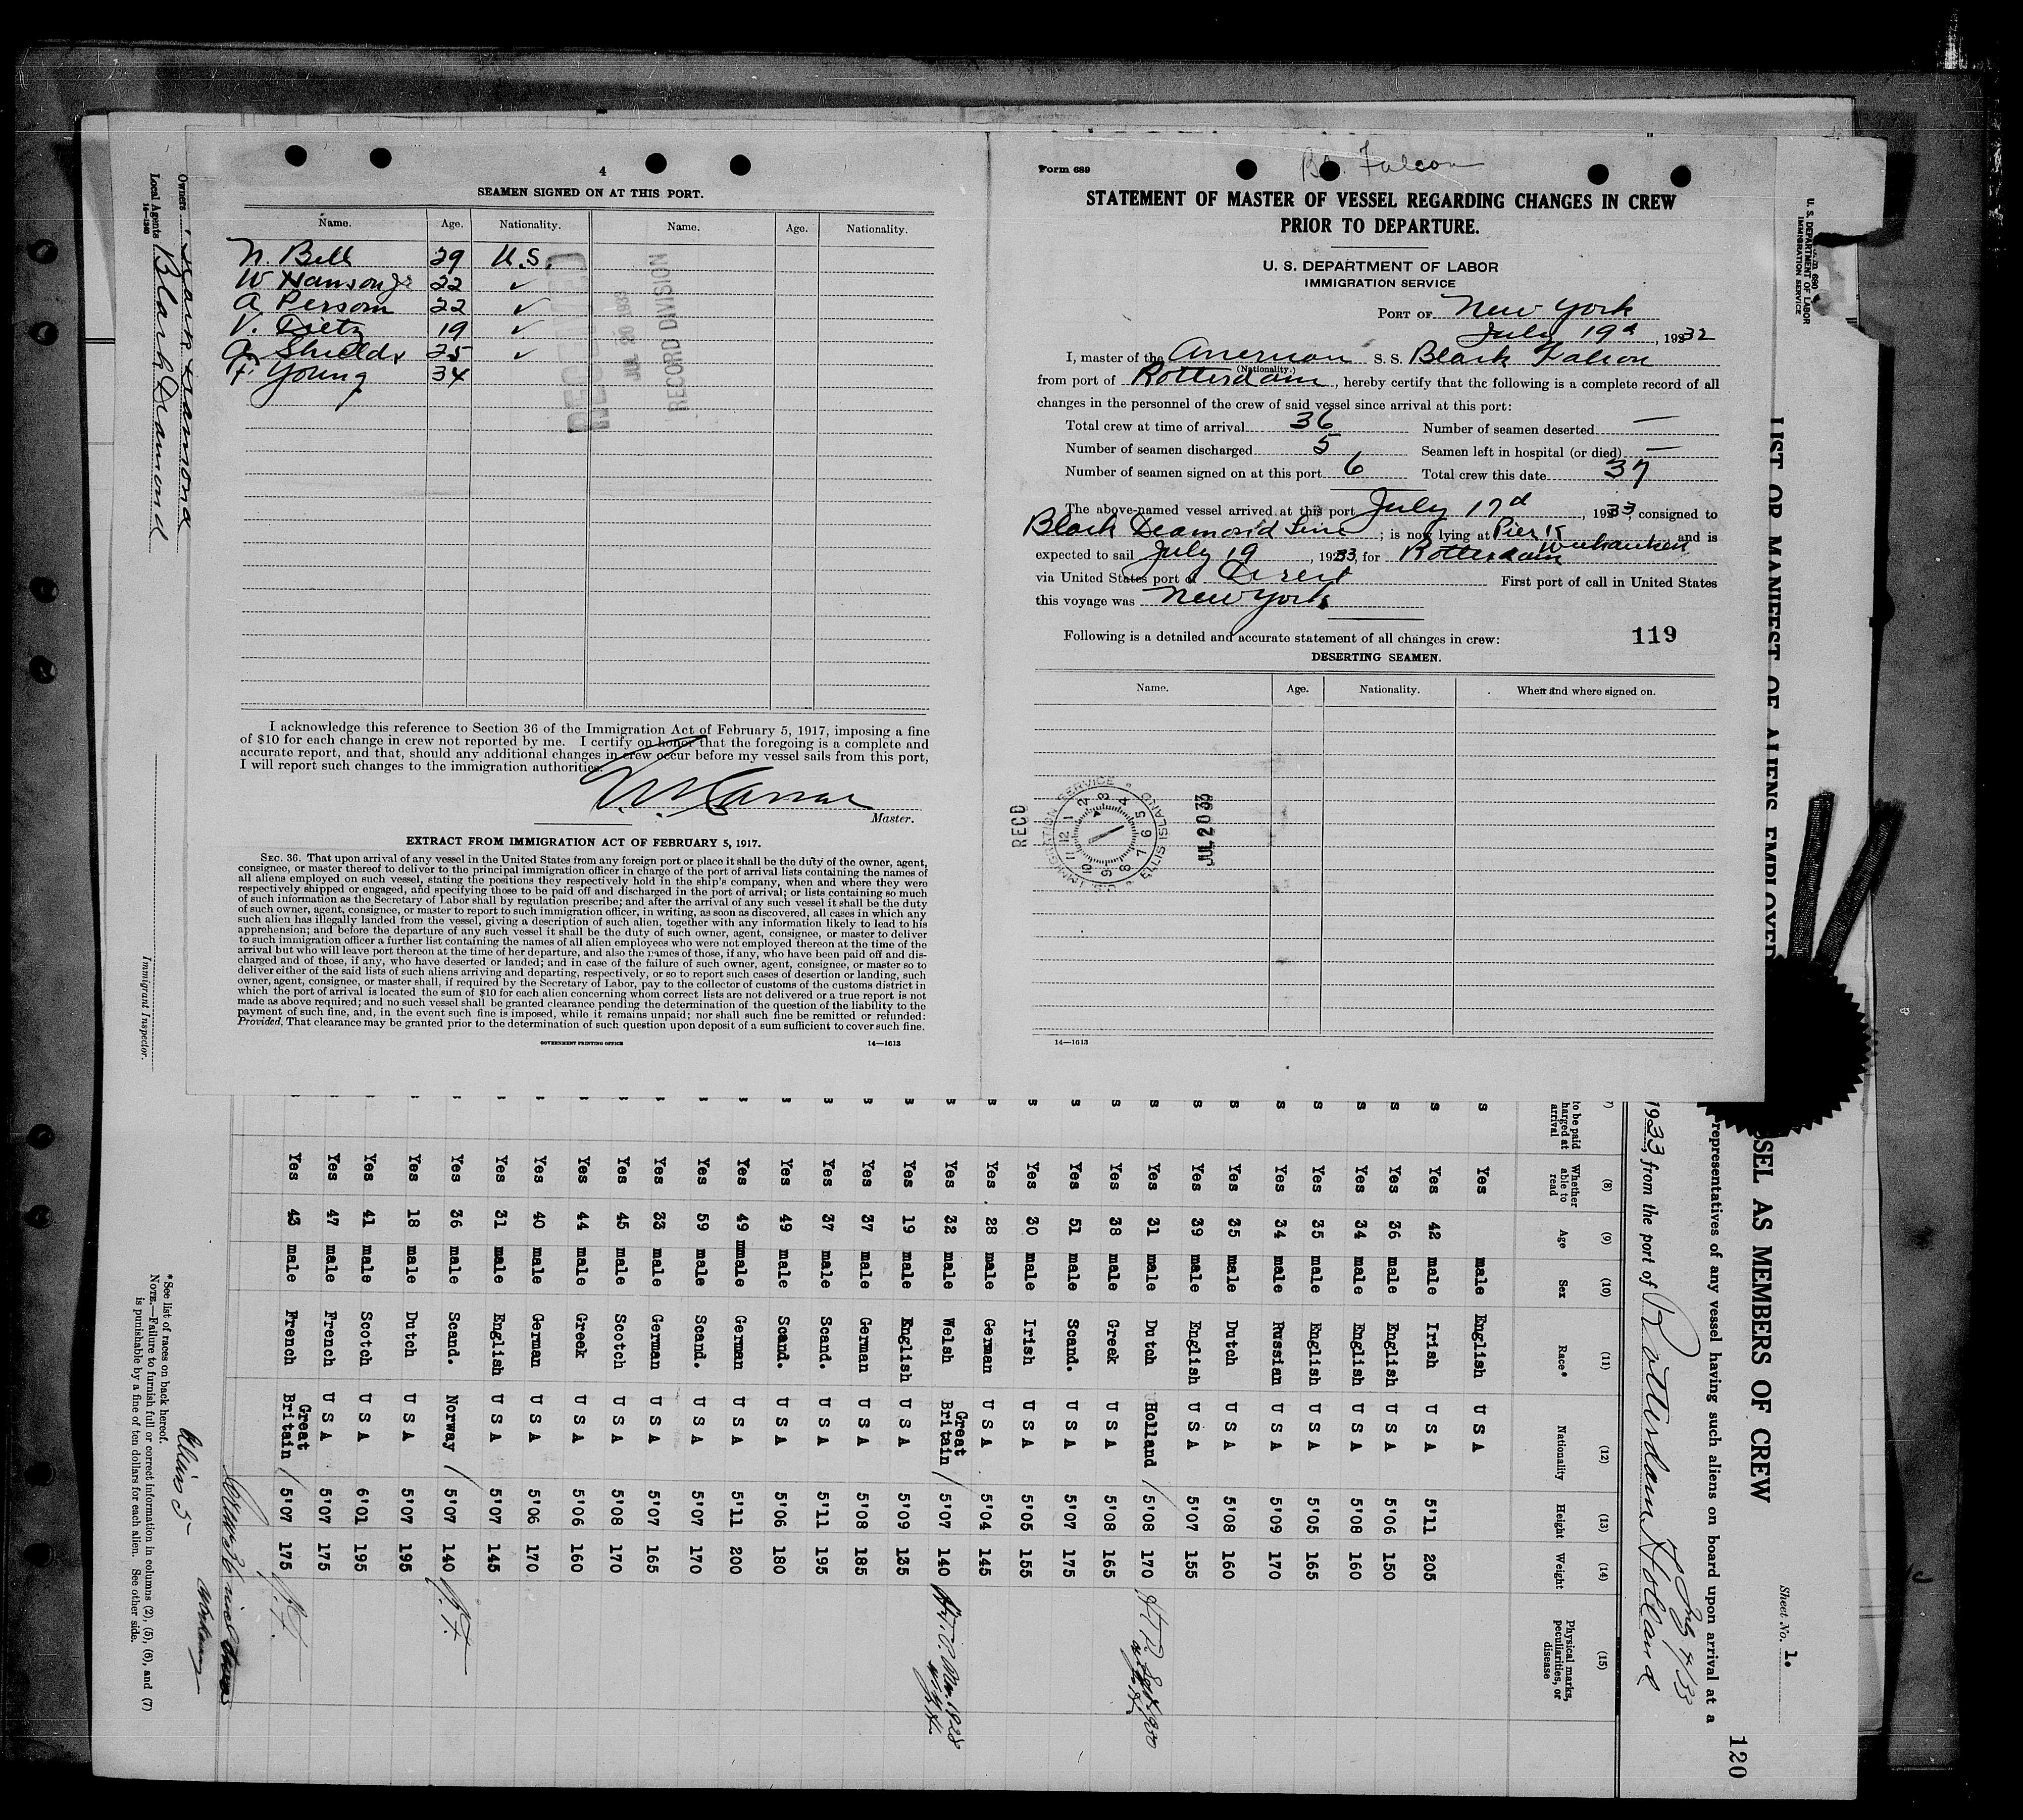 4
SEAMEN SIGNED ON AT THIS PORT.
Name. Age. Nationality. Name. Age. Nationality.
N. Bell 29 U.S.
W Hanson Jr 22 ✓
A Persom 22 ✓
V. Dietz 19 ✓
G. Shields 25 ✓
F Young 34
RECEIVED
JUL 20 1933
RECORD DIVISION
I acknowledge this reference to Section 36 of the Immigration Act of February 5, 1917, imposing a fine
of $10 for each change in crew not reported by me. I certify on honor that the foregoing is a complete and
accurate report, and that, should any additional changes in crew occur before my vessel sails from this port,
I will report such changes to the immigration authorities.
Master.
EXTRACT FROM IMMIGRATION ACT OF FEBRUARY 5, 1917.
SEC. 36. That upon arrival of any vessel in the United States from any foreign port or place it shall be the duty of the owner, agent,
consignee, or master thereof to deliver to the principal immigration officer in charge of the port of arrival lists containing the names of
all aliens employed on such vessel, stating the positions they respectively hold in the ship's company, when and where they were
respectively shipped or engaged, and specifying those to be paid off and discharged in the port of arrival; or lists containing so much
of such information as the Secretary of Labor shall by regulation prescribe; and after the arrival of any such vessel it shall be the duty
of such owner, agent, consignee, or master to report to such immigration officer, in writing, as soon as discovered, all cases in which any
such alien has illegally landed from the vessel, giving a description of such alien, together with any information likely to lead to his
apprehension; and before the departure of any such vessel it shall be the duty of such owner, agent, consignee, or master to deliver
to such immigration officer a further list containing the names of all alien employees who were not employed thereon at the time of the
arrival but who will leave port thereon at the time of her departure, and also the names of those, if any, who have been paid off and dis-
charged and of those, if any, who have deserted or landed; and in case of the failure of such owner, agent, consignee, or master so to
deliver either of the said lists of such aliens arriving and departing, respectively, or so to report such cases of desertion or landing, such
owner, agent, consignee, or master shall, if required by the Secretary of Labor, pay to the collector of customs of the customs district in
which the port of arrival is located the sum of $10 for each alien concerning whom correct lists are not delivered or a true report is not
made as above required; and no such vessel shall be granted clearance pending the determination of the question of the liability to the
payment of such fine, and, in the event such fine is imposed, while it remains unpaid; nor shall such fine be remitted or refunded:
Provided, That clearance may be granted prior to the determination of such question upon deposit of a sum sufficient to cover such fine.
GOVERNMENT PRINTING OFFICE 14—1613
Form 689 Falcon
STATEMENT OF MASTER OF VESSEL REGARDING CHANGES IN CREW
PRIOR TO DEPARTURE.
U. S. DEPARTMENT OF LABOR
IMMIGRATION SERVICE
PORT OF New York
July 19d, 1932
I, master of the American S. S. Black Falcon
(Nationality.)
from port of Rotterdam, hereby certify that the following is a complete record of all
changes in the personnel of the crew of said vessel since arrival at this port:
Total crew at time of arrival 36 Number of seamen deserted —
Number of seamen discharged 5 Seamen left in hospital (or died) —
Number of seamen signed on at this port 6 Total crew this date 37
The above-named vessel arrived at this port July 17d, 1933, consigned to
Black Deamond Line; is now lying at Pier K Weehawken and is
expected to sail July 19, 1933, for Rotterdam
via United States port of Direct First port of call in United States
this voyage was New York
Following is a detailed and accurate statement of all changes in crew: 119
DESERTING SEAMEN.
Name. Age. Nationality. When and where signed on.
RECD
U.S. IMMIGRATION SERVICE ELLIS ISLAND
JUL 20 33
14—1613
Owners
Local Agents Black Diamond
14—1240
Immigrant Inspector.
U. S. DEPARTMENT OF LABOR
IMMIGRATION SERVICE
LIST OR MANIFEST OF ALIENS EMPLOYED
SSEL AS MEMBERS OF CREW
Sheet No. 1.
120
representatives of any vessel having such aliens on board upon arrival at a
1933, from the port of Rotterdam Holland
July 7/33
(8) (9) (10) (11) (12) (13) (14) (15)
to be paid
harged at
arrival
Whether able to read Age Sex Race* Nationality Height Weight Physical marks, peculiarities, or disease
Yes male English U S A
Yes 42 male Irish U S A 5'11 205
Yes 36 male English U S A 5'06 150
Yes 34 male English U S A 5'08 160
Yes 35 male English U S A 5'05 165
Yes 34 male Russian U S A 5'09 170
Yes 35 male Dutch U S A 5'08 160
Yes 39 male English U S A 5'07 155
Yes 31 male Dutch Holland / 5'08 170
Yes 38 male Greek U S A 5'08 165
Yes 51 male Scand. U S A 5'07 175
Yes 30 male Irish U S A 5'05 155
Yes 28 male German U S A 5'04 145
Yes 32 male Welsh Great Britain / 5'07 140
Yes 19 male English U S A 5'09 135
Yes 37 male German U S A 5'08 185
Yes 37 male Scand. U S A 5'11 195
Yes 49 male Scand. U S A 5'06 180
Yes 49 mmale German U S A 5'11 200
Yes 59 male Scand. U S A 5'07 170
Yes 33 male German U S A 5'07 165
Yes 45 male Scotch U S A 5'08 170
Yes 44 male Greek U S A 5'06 160
Yes 40 male German U S A 5'06 170
Yes 31 male English U S A 5'07 145
Yes 36 male Scand. Norway / 5'07 140
Yes 18 male Dutch U S A 5'07 195
Yes 41 male Scotch U S A 6'01 195
Yes 47 male French U S A 5'07 175
Yes 43 male French Great Britain / 5'07 175
*See list of races on back hereof.
NOTE.—Failure to furnish full or correct information in columns (2), (5), (6), and (7)
is punishable by a fine of ten dollars for each alien. See other side.